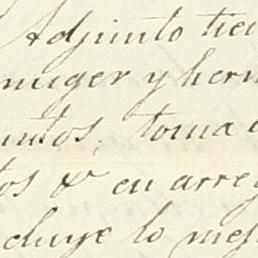 Adjunto tie
muger y her
untos, toma
tos &a en arre
cluye lo mej